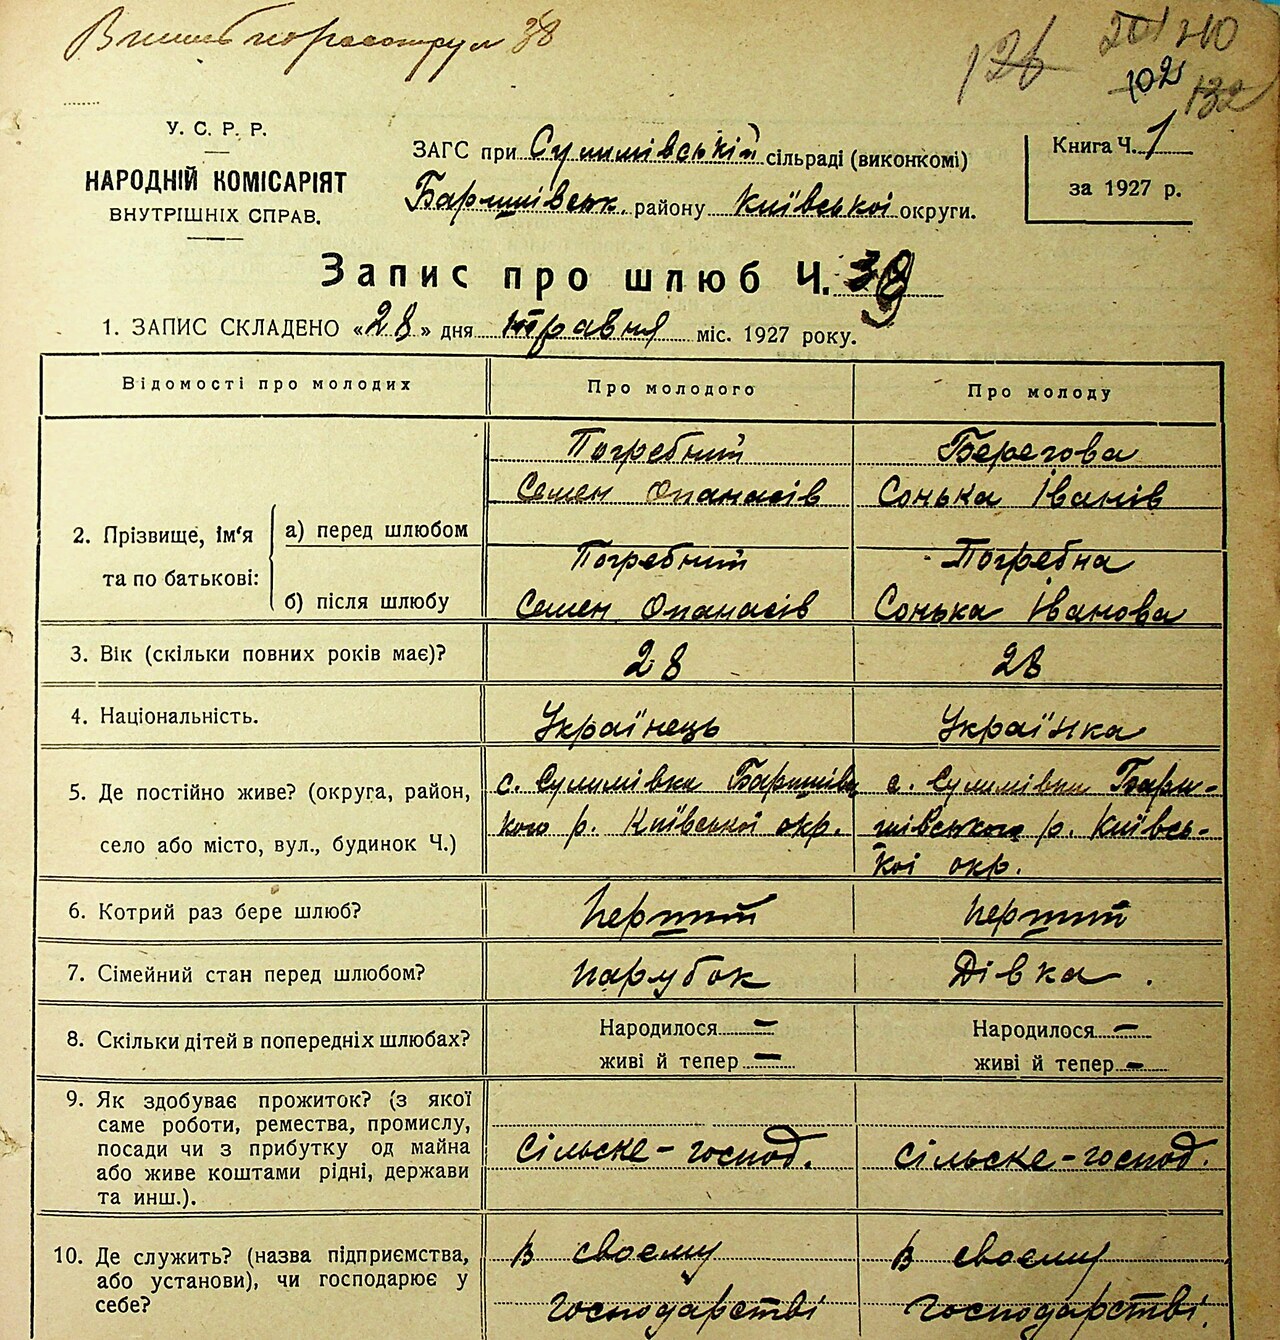 38
126 201 210
102
132
У. С. Р. Р.
НАРОДНІЙ КОМІСАРІЯТ
ВНУТРІШНІХ СПРАВ.
ЗАГС при Сулимівській сільраді (виконкомі)
Баришівськ. району Київської округи.
Книга Ч. 1
за 1927 р.
Запис про шлюб Ч. 39
1. ЗАПИС СКЛАДЕНО «28» дня травня міс. 1927 року.
Відомості про молодих
Про молодого
Про молоду
2. Прізвище, ім'я
та по батькові:
а) перед шлюбом
Погребний
Семен Опанасів
Берегова
Сонька Іванів
б) після шлюбу
Погребний
Семен Опанасів
Погребна
Сонька Іванова
3. Вік (скільки повних років має)?
28
28
4. Національність.
Українець
Українка
5. Де постійно живе? (округа, район,
село або місто, вул., будинок Ч.)
с. Сулимівка Баришівсь
кого р. Київської окр.
с. Сулимівка Бари-
шівського р. Київсь-
кої окр.
6. Котрий раз бере шлюб?
перший
перший
7. Сімейний стан перед шлюбом?
парубок
Дівка
8. Скільки дітей в попередніх шлюбах?
Народилося —
живі й тепер —
Народилося —
живі й тепер —
9. Як здобуває прожиток? (з якої
саме роботи, ремества, промислу,
посади чи з прибутку од майна
або живе коштами рідні, держави
та инш.).
сільске-господ.
сільске-господ.
10. Де служить? (назва підприємства,
або установи), чи господарює у
себе?
в своєму
господарстві
в своєму
господарстві.